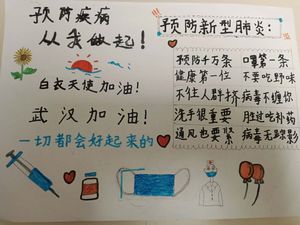 预防疾病
从我做起！
白衣天使加油！
武汉加油！
一切都会好起来的
预防新型肺炎：
预防千万条 口罩第一条
健康第一位 不要吃野味
不往人群挤 病毒不缠你
洗手很重要 胜过吃补药
通风也要紧 病毒无踪影